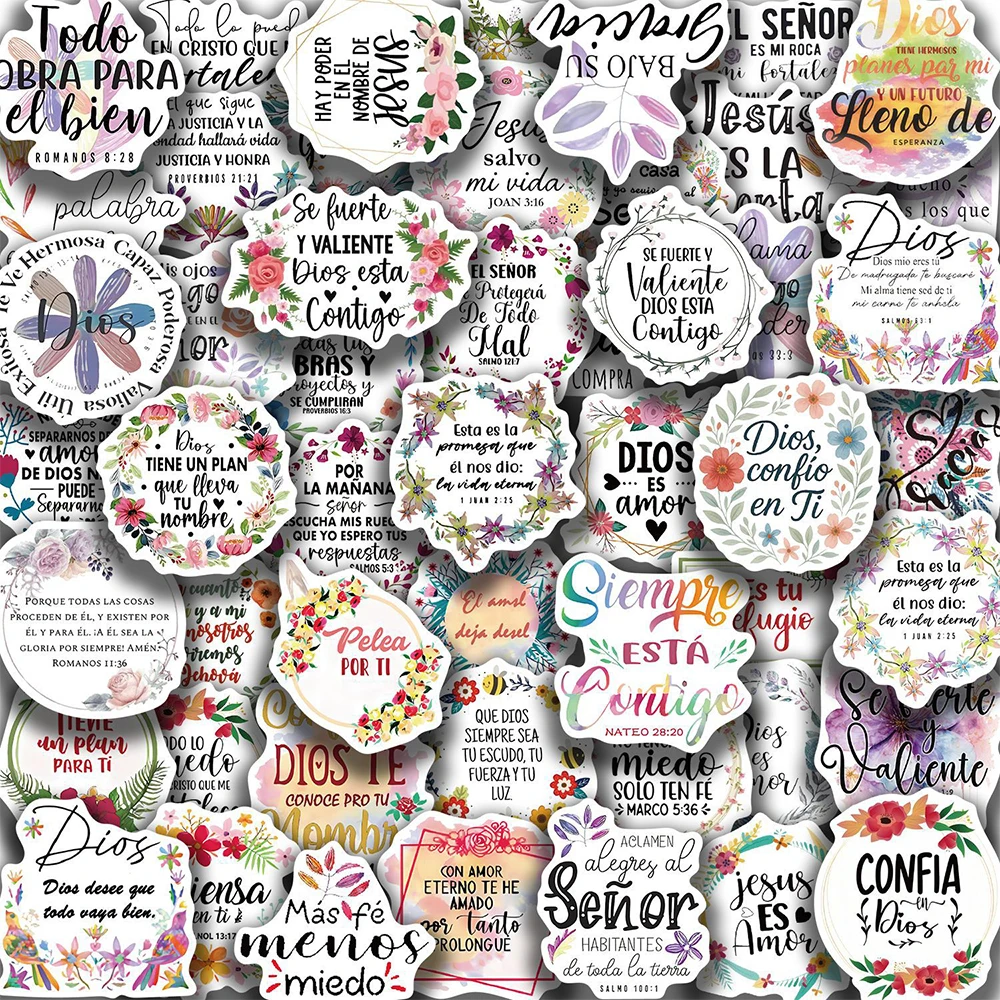 Todo
OBRA PARA
el bien
ROMANOS 8:28
Todo lo
EN CRISTO QUE
El que sigue
A JUSTICIA Y LA
hallará vida
JUSTICIA Y HONRA
PROVERBIOS 21:21
palabra
HAY PODER
EN EL
NOMBRE DE
JESUS
Jesus
salvo
mi vida
JOAN 3:16
BAJO SU
EL SEÑOR
ES MI ROCA
mi fortaleza
Jesús
ES LA
Dios
TIENE HERMOSOS
planes par mi
Y UN FUTURO
Lleno de
ESPERANZA
casa
los que
Te Ve Hermosa Capaz Poderosa Valiosa Util Exitosa
Dios
ojos
Se fuerte
Y VALIENTE
Dios esta
Contigo
EL SEÑOR
te Protegerá
De Todo
Mal
SALMO 121:7
SE FUERTE Y
Valiente
DIOS ESTA
Contigo
33:3
Dios
Dios mio eres tú
De madrugada te buscaré
Mi alma tiene sed de ti
mi carne te anhela
SALMOS 63:1
BRAS Y
royectos y
SE CUMPLIRAN
PROVERBIOS 16:3
COMPRA
SEPARARNOS DE
amor
DE DIOS
PUEDE
Separarnos
Dios
TIENE UN PLAN
que lleva
TU
nombre
POR
LA MAÑANA
Señor
ESCUCHA MIS
QUE YO ESPERO TUS
respuestas
SALMOS 5:3
Esta es la
promesa que
él nos dio:
la vida eterna
1 JUAN 2:25
DIOS
ES
amor
Dios,
confío
en Ti
Esta es la
promesa que
él nos dio:
la vida eterna
1 JUAN 2:25
PORQUE TODAS LAS COSAS
PROCEDEN DE ÉL, Y EXISTEN POR
ÉL Y PARA ÉL. ¡A ÉL SEA LA
GLORIA POR SIEMPRE! AMÉN.
ROMANOS 11:36
cuanto
y a mi
nosotros
Jehová
Pelea
POR TI
El amsl
deja desel
Siempre
ESTÁ
Contigo
NATEO 28:20
Es tu
efugio
TIENE
un plan
PARA TÍ
DO LO
CRISTO QUE ME
DIOS TE
CONOCE PRO TU
Nombr
QUE DIOS
SIEMPRE SEA
TU ESCUDO, TU
FUERZA Y TU
LUZ.
miedo
SOLO TEN FE
MARCO 5:36
Dios
es
Se fuerte
y
Valiente
Dios
Dios desee que
todo vaya bien.
en ti
13:17
Más fé
menos
miedo
CON AMOR
ETERNO TE HE
AMADO
por tanto
PROLONGUÉ
ACLAMEN
alegres al
Señor
HABITANTES
de toda la tierra
SALMO 100:1
jesus
ES
Amor
CONFIA
en
Dios